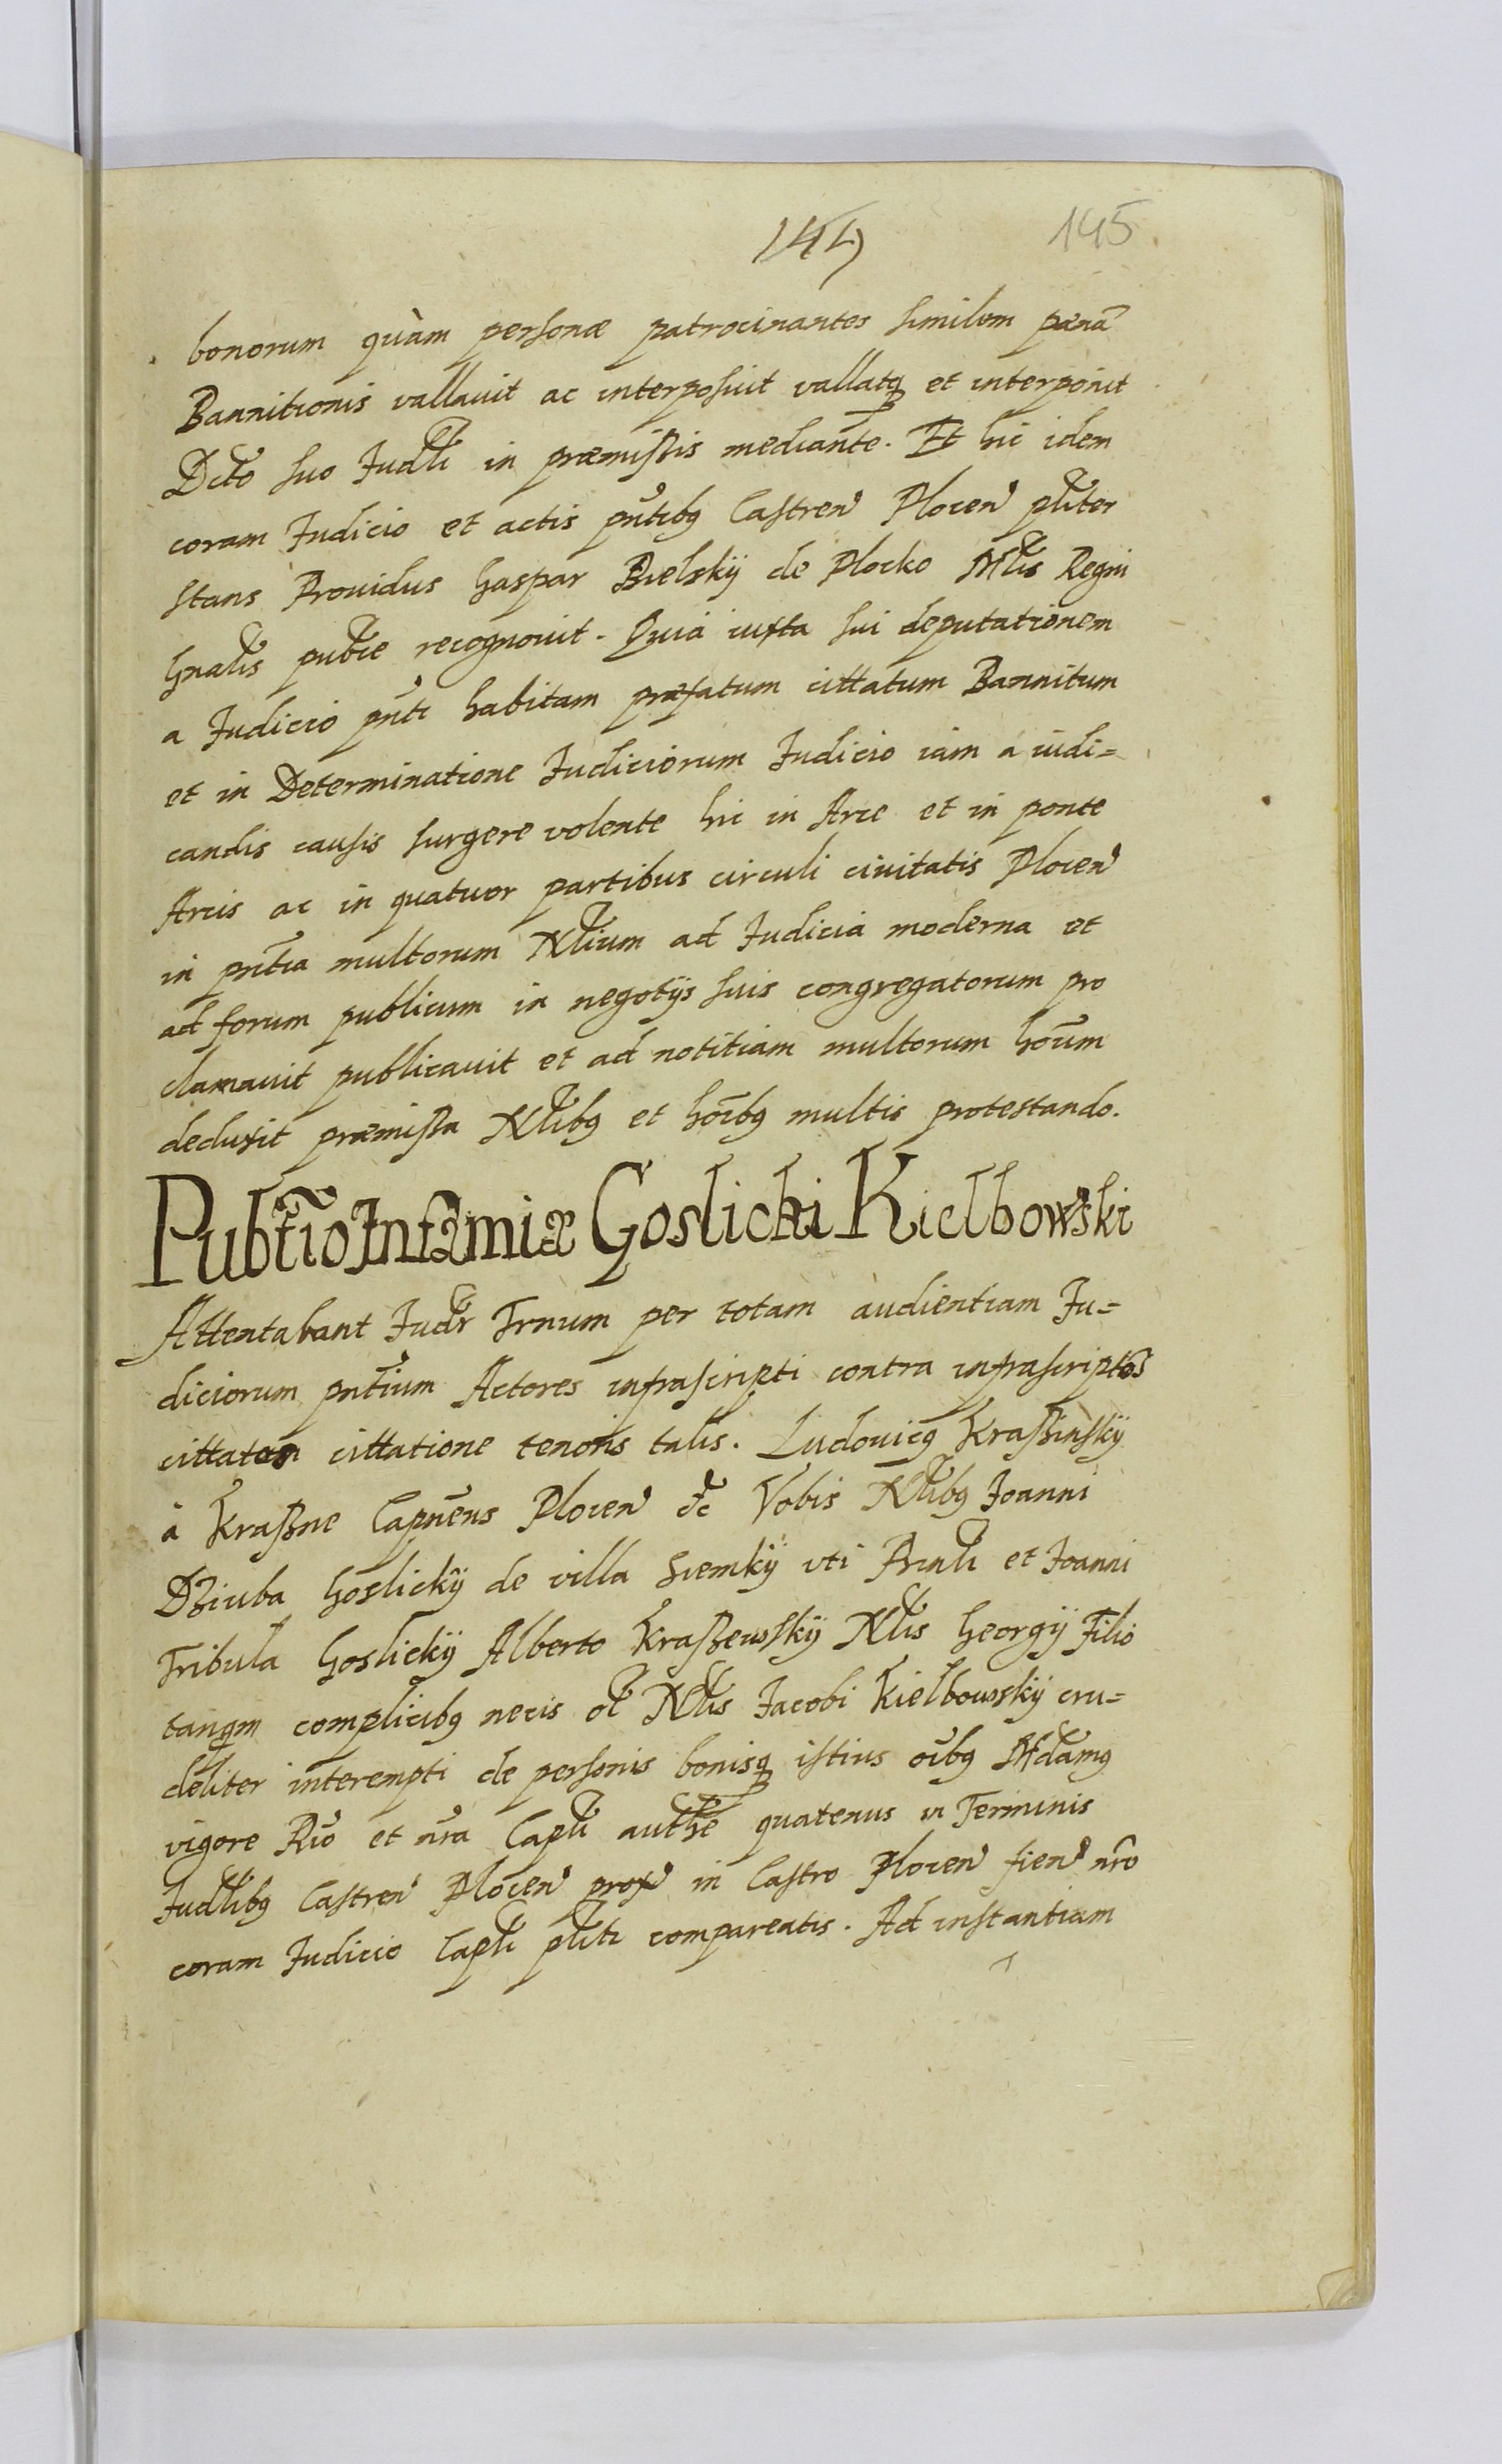 144 145
bonorum quàm personæ patrocinantes similem pænã
Bannitionis vallauit ac interposuit vallatq et interponit
Dcto suo Judli in præmissis mediante. Et hic idem
coram Judicio et actis pñtibq Castren Plocen pliter
stans Prouidus Gaspar Bielskÿ de Plocko Mlis Regni
Gnalis publce recognouit. Quia iuxta sui deputationem
a Judicio pñti habitam præfatum cittatum Bannitum
et in Determinatione Judiciorum Judicio iam a iudi=
candis causis surgere volente hic in Arce et in ponte
Arcis ac in quatuor partibus circuli ciuitatis Plocen
in pñtia multorum Nlium ad Judicia moderna et
ad forum publicum in negotÿs suis congregatorum pro
clamauit publicauit et ad notitiam multorum hoĩum
deduxit præmissa Nlibq et hoĩbq multis protestando.
Publtio Infamiæ Goslicki Kielbowski
Attentabant Judr Trnum per totam audientiam Ju=
diciorum pñtium Actores infrascripti contra infrascriptos
cittatos cittatione tenoris talis. Ludouicq Kraßinskÿ
à Kraßne Capñeus Plocen &c Vobis Nlibq Joanni
Dziuba Goslickÿ de villa Siemkÿ vti Prinli et Joanni
Tribula Goslickÿ Alberto Kraßewskÿ Nlis Georgÿ Filio
tanqm complicibq necis ol Nlis Jacobi Kielbowskÿ cru=
deliter interempti de personis bonisq istius oĩbq Mdamq
vigore Rio et nra Capli authe quatenus in Terminis
Judlibq Castren Plocen prox in Castro Plocen fien nro
coram Judicio Capli pliti compareatis. Ad instantiam